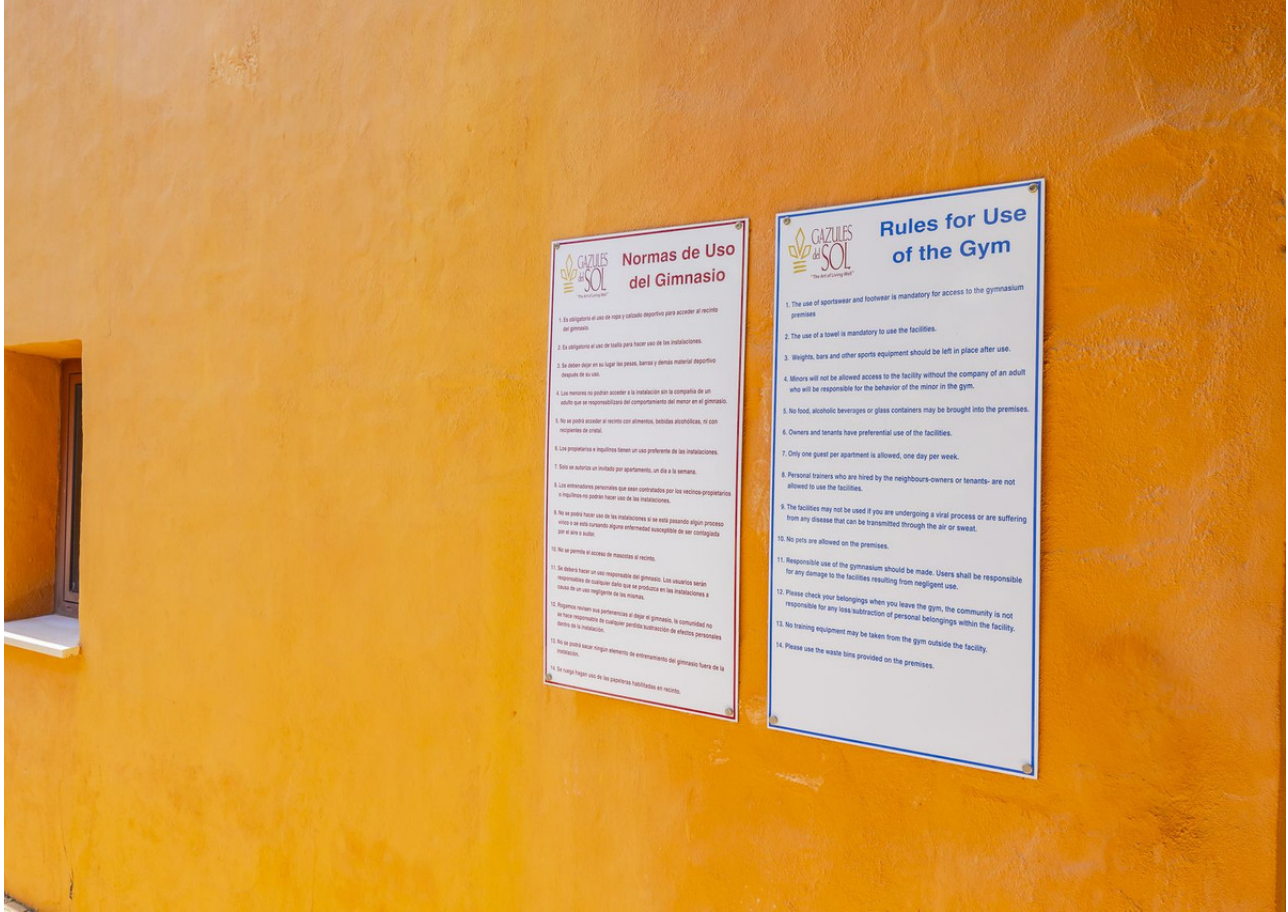 GAZULES
del SOL
"The Art of Living Well"
Normas de Uso
del Gimnasio
1. Es obligatorio el uso de ropa y calzado deportivo para acceder al recinto
del gimnasio.
2. Es obligatorio el uso de toalla para hacer uso de las instalaciones.
3. Se deben dejar en su lugar las pesas, barras y demás material deportivo
después de su uso.
4. Los menores no podrán acceder a la instalación sin la compañía de un
adulto que se responsabilizará del comportamiento del menor en el gimnasio.
5. No se podrá acceder al recinto con alimentos, bebidas alcohólicas, ni con
recipientes de cristal.
6. Los propietarios e inquilinos tienen un uso preferente de las instalaciones.
7. Solo se autoriza un invitado por apartamento, un día a la semana.
8. Los entrenadores personales que sean contratados por los vecinos-propietarios
o inquilinos-no podrán hacer uso de las instalaciones.
9. No se podrá hacer uso de las instalaciones si se está pasando algun proceso
vírico o se está cursando alguna enfermedad susceptible de ser contagiada
por el aire o sudor.
10. No se permite el acceso de mascotas al recinto.
11. Se deberá hacer un uso responsable del gimnasio. Los usuarios serán
responsables de cualquier daño que se produzca en las instalaciones a
causa de un uso negligente de las mismas.
12. Rogamos revisen sus pertenencias al dejar el gimnasio, la comunidad no
se hace responsable de cualquier perdida sustracción de efectos personales
dentro de la instalación.
13. No se podrá sacar ningun elemento de entrenamiento del gimnasio fuera de la
instalación.
14. Se ruega hagan uso de las papeleras habilitadas en recinto.
GAZULES
del SOL
"The Art of Living Well"
Rules for Use
of the Gym
1. The use of sportswear and footwear is mandatory for access to the gymnasium
premises
2. The use of a towel is mandatory to use the facilities.
3. Weights, bars and other sports equipment should be left in place after use.
4. Minors will not be allowed access to the facility without the company of an adult
who will be responsible for the behavior of the minor in the gym.
5. No food, alcoholic beverages or glass containers may be brought into the premises.
6. Owners and tenants have preferential use of the facilities.
7. Only one guest per apartment is allowed, one day per week.
8. Personal trainers who are hired by the neighbours-owners or tenants- are not
allowed to use the facilities.
9. The facilities may not be used if you are undergoing a viral process or are suffering
from any disease that can be transmitted through the air or sweat.
10. No pets are allowed on the premises.
11. Responsible use of the gymnasium should be made. Users shall be responsible
for any damage to the facilities resulting from negligent use.
12. Please check your belongings when you leave the gym, the community is not
responsible for any loss/subtraction of personal belongings within the facility.
13. No training equipment may be taken from the gym outside the facility.
14. Please use the waste bins provided on the premises.